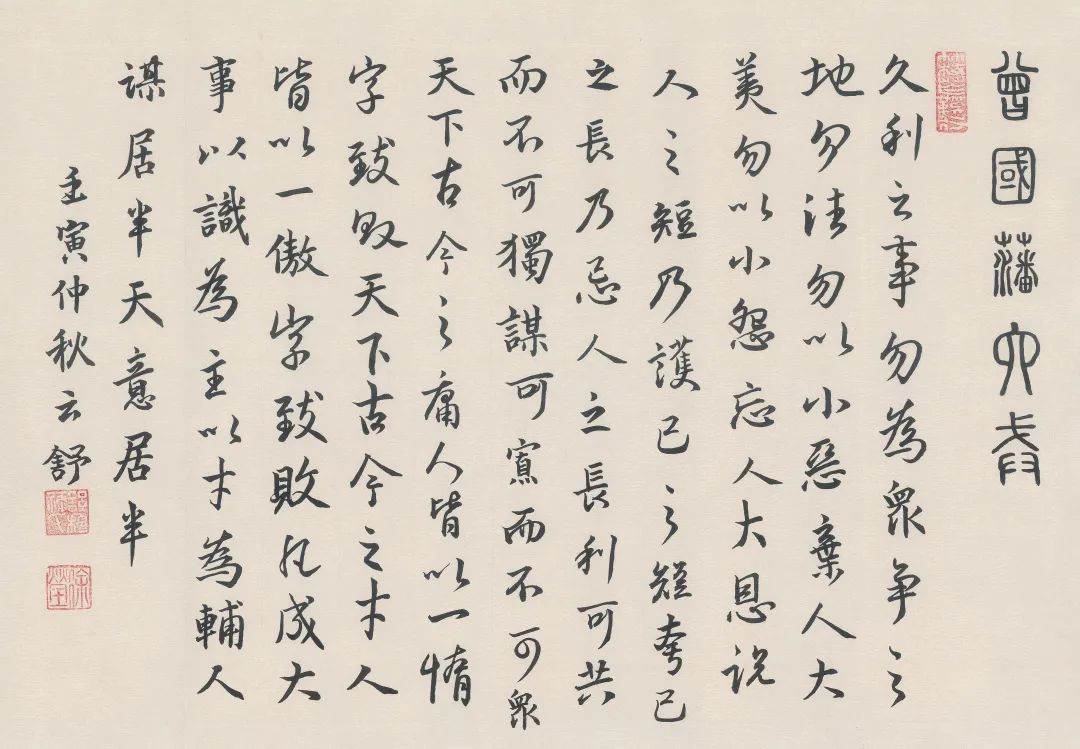 曾國藩六戒
久利之事勿為眾争之
地勿往勿以小惡棄人大
美勿以小怨忘人大恩説
人之短乃護己之短夸己
之長乃忌人之長利可共
而不可獨謀可寡而不可眾
天下古今之庸人皆以一惰
字致敗天下古今之才人
皆以一傲字致敗凡成大
事以識為主以才為輔人
謀居半天意居半
壬寅仲秋云舒